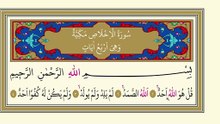 سُورَةُ الْاِخْلَاصِ مَكِّيَّةٌ
وَهِيَ اَرْبَعُ اٰيَاتٍ
بِسْمِ اللّٰهِ الرَّحْمٰنِ الرَّحِيمِ
قُلْ هُوَ اللّٰهُ اَحَدٌ اَللّٰهُ الصَّمَدُ لَمْ يَلِدْ وَلَمْ يُولَدْ وَلَمْ يَكُنْ لَهُ كُفُوًا اَحَدٌ